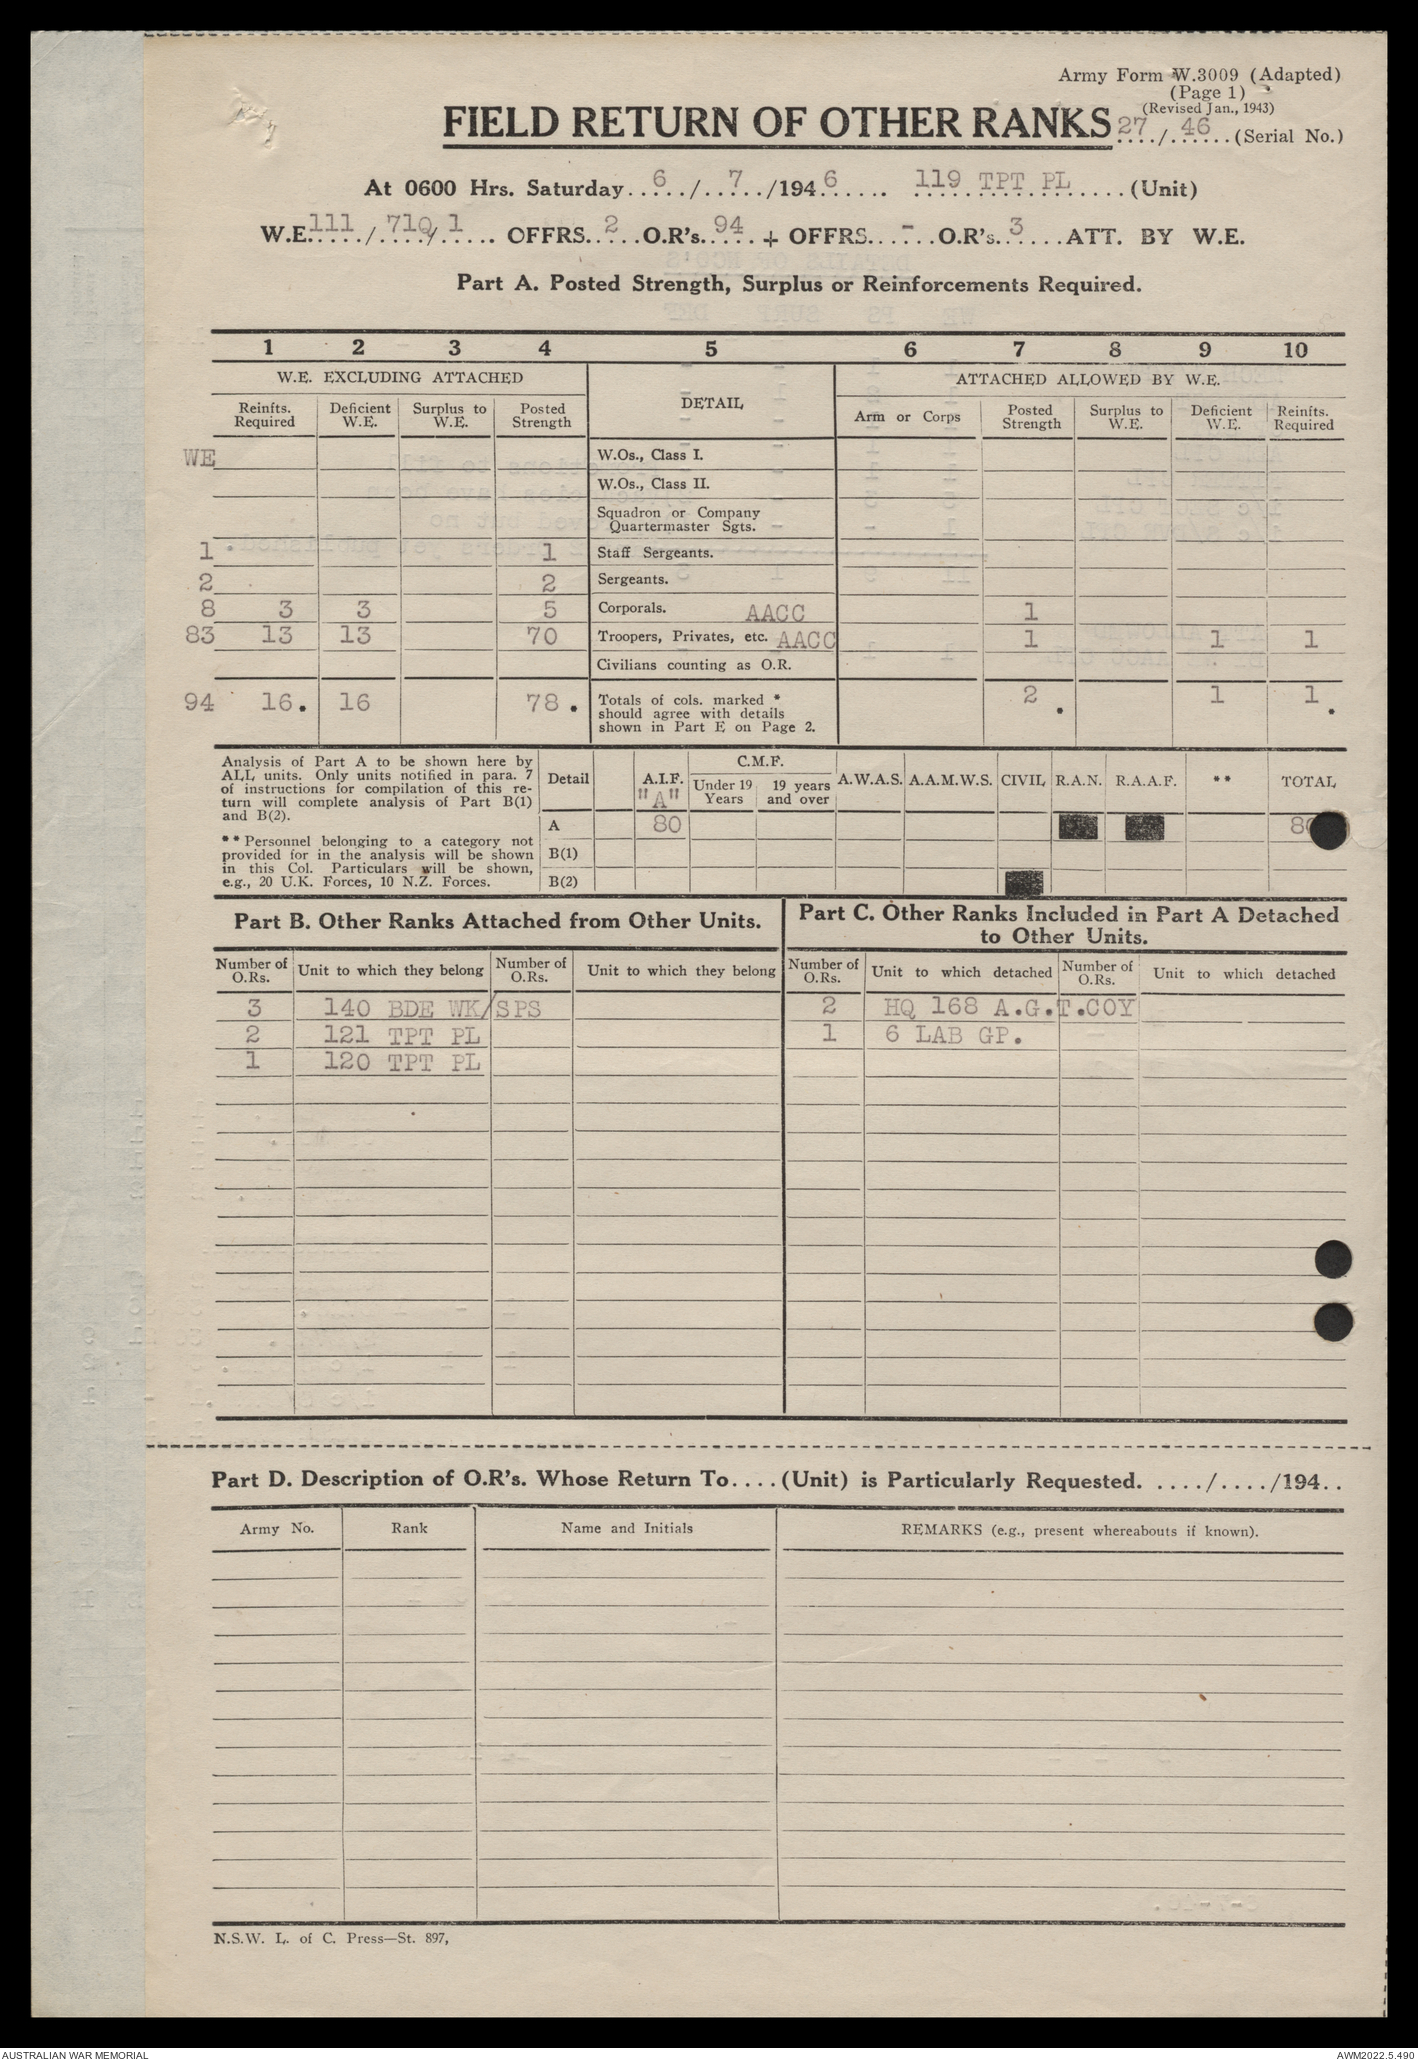 Army Form W.3009 (Adapted)
(Page 1)
(Revised Jan., 1943)
FIELD RETURN OF OTHER RANKS 27/46 (Serial No.)
At 0600 Hrs. Saturday 6/7/1946 119 TPT PL (Unit)
W.E. 111/71Q/1 OFFRS. 2 O.R's. 94 + OFFRS. - O.R's. 3 ATT. BY W.E.
Part A. Posted Strength, Surplus or Reinforcements Required.
1 2 3 4 5 6 7 8 9 10
W.E. EXCLUDING ATTACHED DETAIL ATTACHED ALLOWED BY W.E.
Reinfts. Required Deficient W.E. Surplus to W.E. Posted Strength Arm or Corps Posted Strength Surplus to W.E. Deficient W.E. Reinfts. Required
WE W.Os., Class I.
W.Os., Class II.
Squadron or Company
Quartermaster Sgts.
1 1 Staff Sergeants.
2 2 Sergeants.
8 3 3 5 Corporals. AACC 1
83 13 13 70 Troopers, Privates, etc. AACC 1 1 1
Civilians counting as O.R.
94 16. 16 78. Totals of cols. marked * 2 1 1
should agree with details
shown in Part E on Page 2.
Analysis of Part A to be shown here by
ALL units. Only units notified in para. 7
of instructions for compilation of this re-
turn will complete analysis of Part B(1)
and B(2).
** Personnel belonging to a category not
provided for in the analysis will be shown
in this Col. Particulars will be shown,
e.g., 20 U.K. Forces, 10 N.Z. Forces.
Detail A.I.F. "A" C.M.F. Under 19 Years 19 years and over A.W.A.S. A.A.M.W.S. CIVIL R.A.N. R.A.A.F. ** TOTAL
A 80 8
B(1)
B(2)
Part B. Other Ranks Attached from Other Units.
Number of O.Rs. Unit to which they belong Number of O.Rs. Unit to which they belong
3 140 BDE WK/SPS
2 121 TPT PL
1 120 TPT PL
Part C. Other Ranks Included in Part A Detached
to Other Units.
Number of O.Rs. Unit to which detached Number of O.Rs. Unit to which detached
2 HQ 168 A.G.T.COY
1 6 LAB GP.
Part D. Description of O.R's. Whose Return To....(Unit) is Particularly Requested. ..../..../194..
Army No. Rank Name and Initials REMARKS (e.g., present whereabouts if known).
N.S.W. L. of C. Press—St. 897,
AUSTRALIAN WAR MEMORIAL AWM2022.5.490